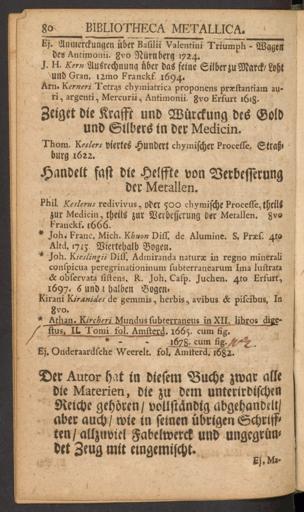 80 BIBLIOTHECA METALLICA.
Ej. Anmerckungen über Basilii Valentini Triumph-Wagen
des Antimonii. 8vo Nürnberg 1724.
J. H. Kern Ausrechnung über das feine Silber zu Marck/ Loht
und Gran. 12mo Franckf. 1694.
Arn. Kerneri Tetras chymiatrica proponens præstantiam au-
ri, argenti, Mercurii, Antimonii. 8vo Erfurt 1618.
Zeiget die Krafft und Würckung des Gold
und Silbers in der Medicin.
Thom. Keslers viertes Hundert chymischer Processe, Straß-
burg 1622.
Handelt fast die Helffte von Verbesserung
der Metallen.
Phil. Keslerus redivivus, oder 500 chymische Processe, theils
zur Medicin, theils zur Verbesserung der Metallen. 8vo
Franckf. 1666.
* Joh. Franc. Mich. Khuon Diss. de Alumine. S. Præs. 4to
Altd. 1715 Viertehalb Bogen.
* Joh. Kieslingii Diss. Admiranda naturæ in regno minerali
conspicua peregrinationum subterranearum Ima lustrata
& observata sistens, R. Joh. Casp. Juchen. 4to Erfurt,
1697. 6 und 1 halben Bogen.
Kirani Kiranides de gemmis, herbis, avibus & piscibus, In
8vo.
* Athan. Kircheri Mundus subterraneus in XII. libros dige-
stus, II. Tomi fol. Amsterd. 1665. cum fig.
- - - 1678. cum fig.
Ej. Onderaardsche Weerelt. fol. Amsterd. 1682.
Der Autor hat in diesem Buche zwar alle
die Materien, die zu dem unterirdischen
Reiche gehören/ vollständig abgehandelt/
aber auch/ wie in seinen übrigen Schriff-
ten/ allzuviel Fabelwerck und ungegrün-
det Zeug mit eingemischt.
Ej. Ma-